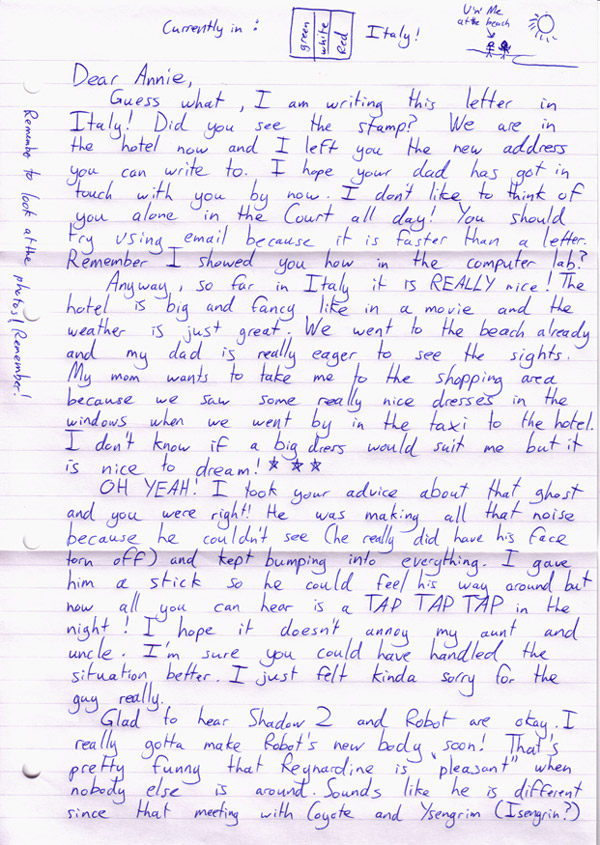 Currently in :
green
white
Red
Italy!
U'n' Me
at the beach
Dear Annie,
Guess what, I am writing this letter in
Italy! Did you see the stamp? We are in
the hotel now and I left you the new address
you can write to. I hope your dad has got in
touch with you by now. I don't like to think of
you alone in the Court all day! You should
try using email because it is faster than a letter.
Remember I showed you how in the computer lab?
Anyway, so far in Italy it is REALLY nice! The
hotel is big and fancy like in a movie and the
weather is just great. We went to the beach already
and my dad is really eager to see the sights.
My mom wants to take me to the shopping area
because we saw some really nice dresses in the
windows when we went by in the taxi to the hotel.
I don't know if a big dress would suit me but it
is nice to dream! ☆ ☆ ☆
OH YEAH! I took your advice about that ghost
and you were right! He was making all that noise
because he couldn't see (he really did have his face
torn off) and kept bumping into everything. I gave
him a stick so he could feel his way around but
now all you can hear is a TAP TAP TAP in the
night! I hope it doesn't annoy my aunt and
uncle. I'm sure you could have handled the
situation better. I just felt kinda sorry for the
guy really.
Glad to hear Shadow 2 and Robot are okay. I
really gotta make Robot's new body soon! That's
pretty funny that Reynardine is "pleasant" when
nobody else is around. Sounds like he is different
since that meeting with Coyote and Ysengrim (Isengrin?)
Remembe to look at the photos! Remember!